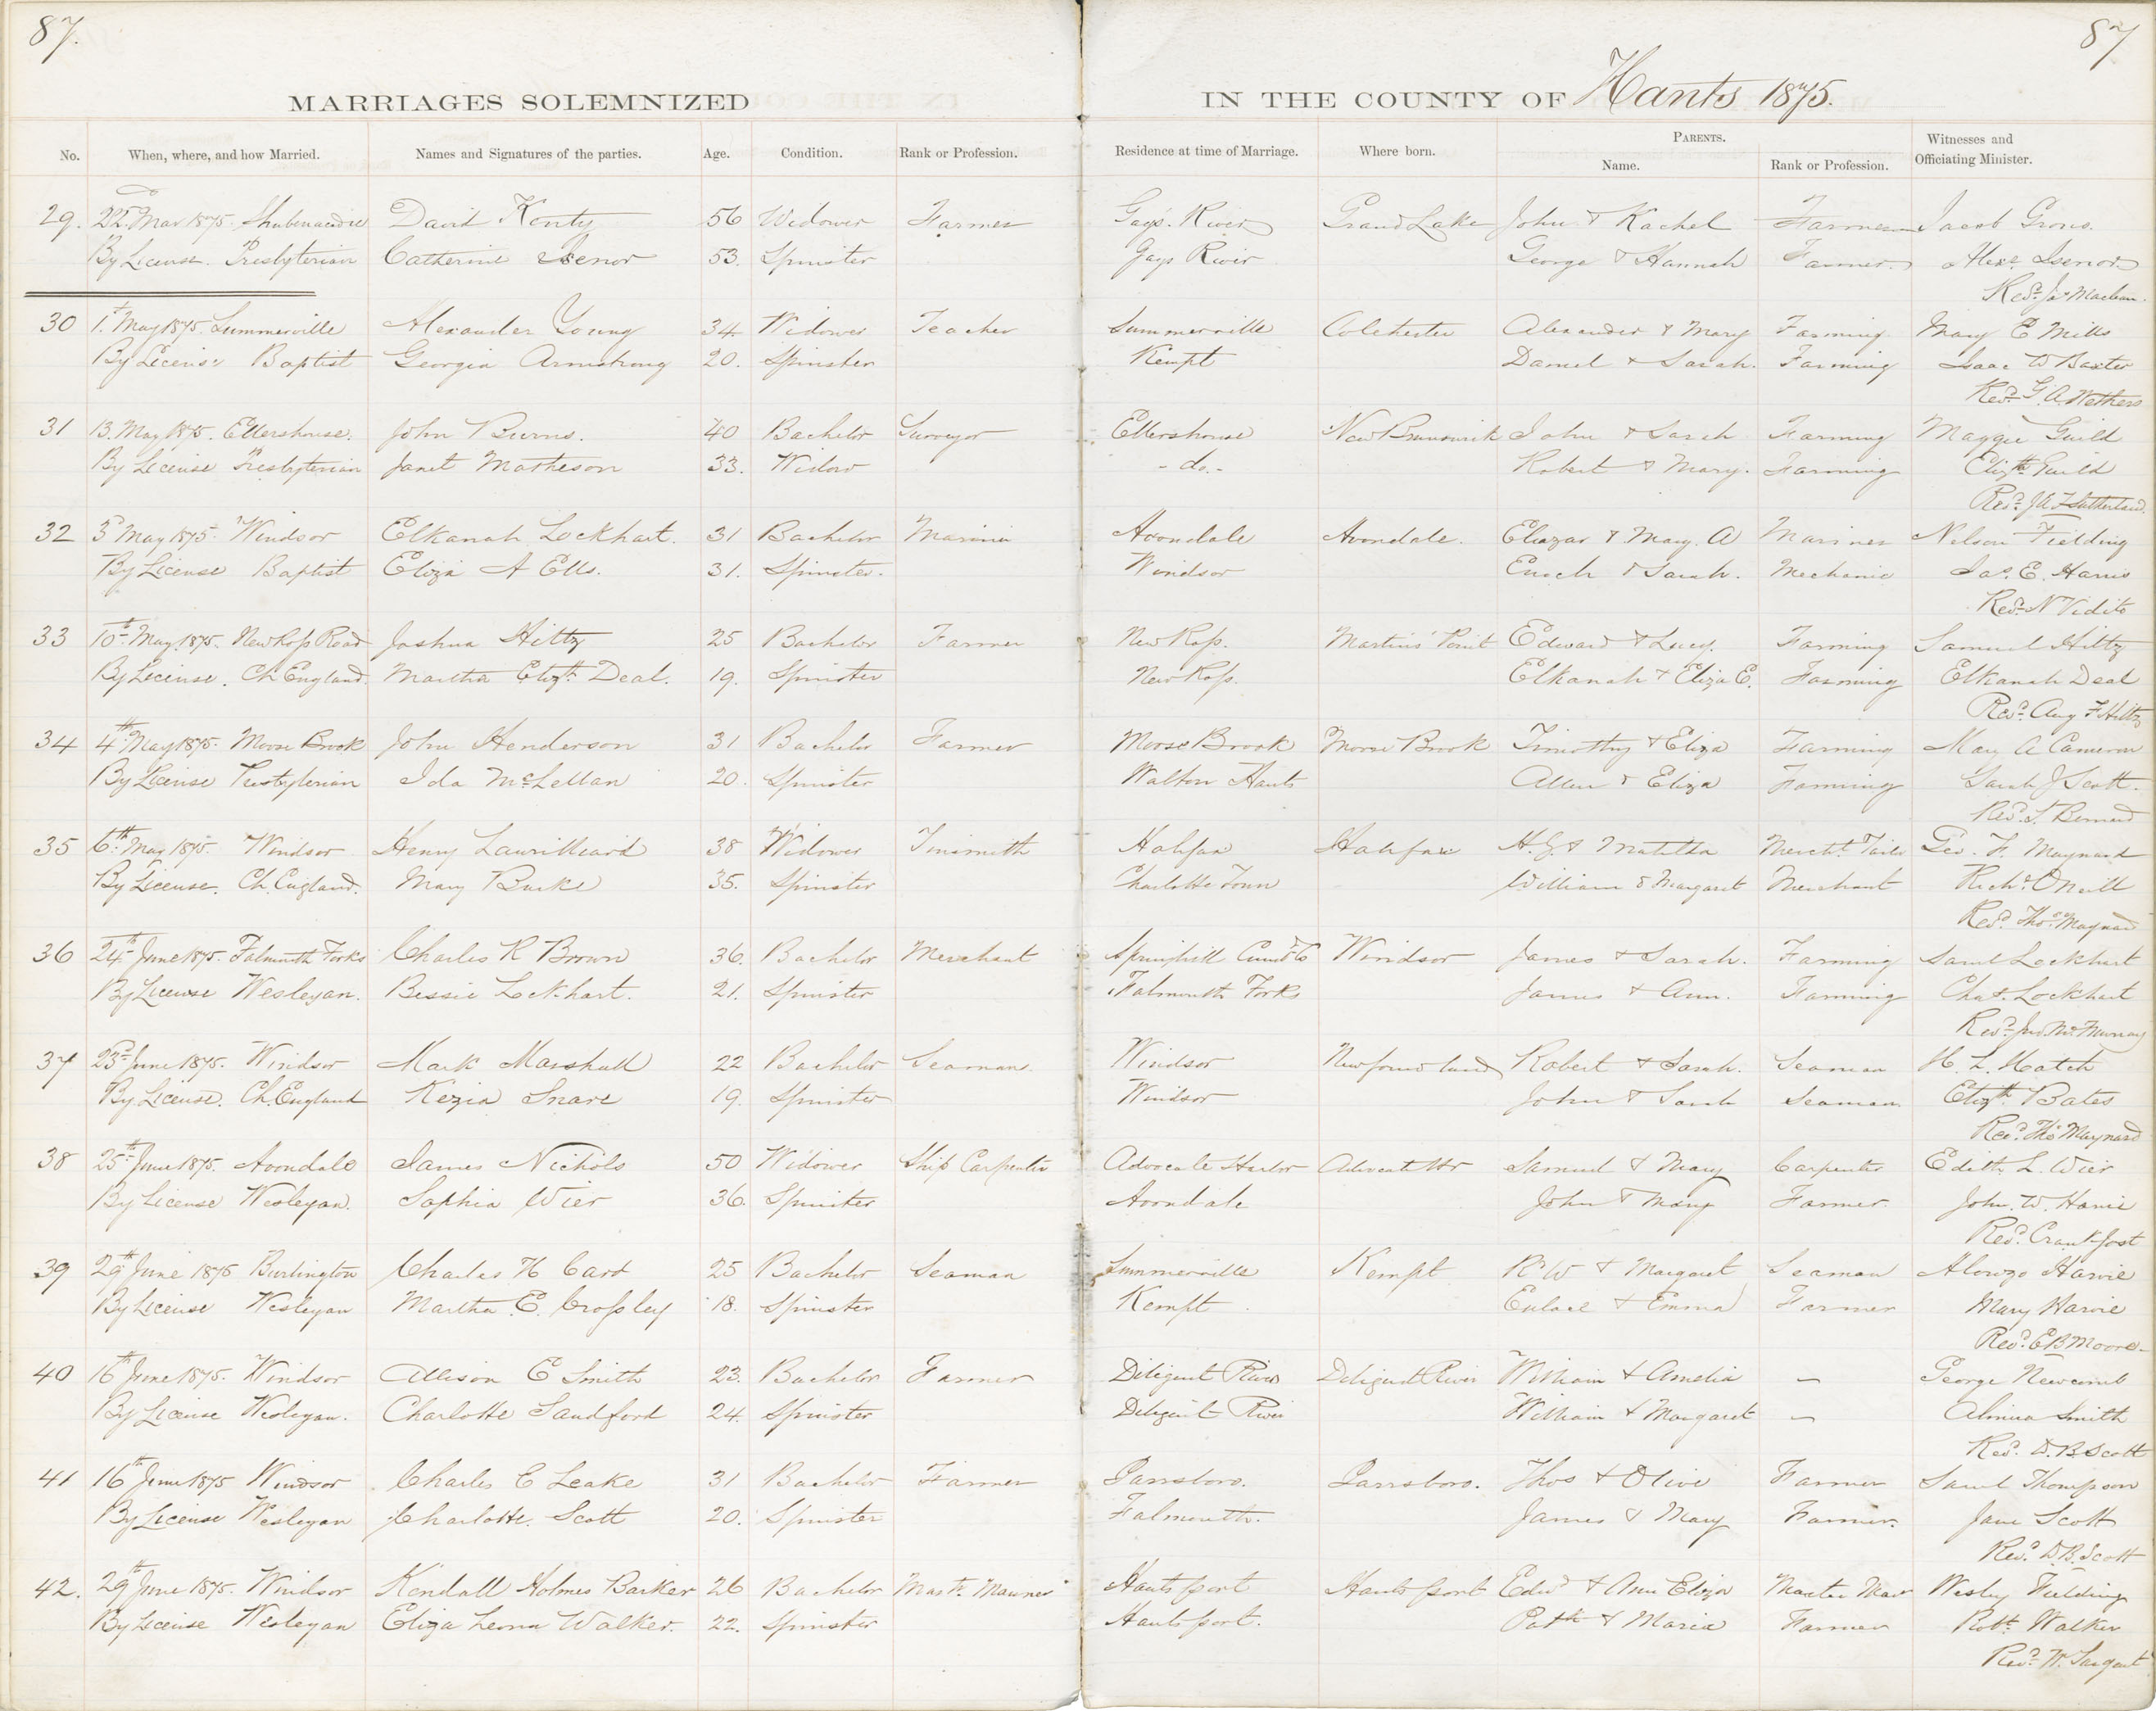 87.
87
MARRIAGES SOLEMNIZED
IN THE COUNTY OF Hants 1875.
No. When, where, and how Married. Names and Signatures of the parties. Age. Condition. Rank or Profession. Residence at time of Marriage. Where born. PARENTS. Name. Rank or Profession. Witnesses and Officiating Minister.
29. 22d Mar 1875. Shubenacadie David Kenty 56 Widower Farmer Gays River Grand Lake John & Rachel Farmer Jacob
By License. Presbyterian Catherine Isenor 53. Spinster Gays River George & Hannah Farmer. Alexr Isenor
Revd. Jas Maclean.
30 1st May 1875. Summerville Alexander Young 34. Widower Teacher Summerville Colchester Alexander & Mary Farming Mary E Mills
By License Baptist Georgia Armstrong 20. Spinster Kempt Daniel & Sarah. Farming Isaac W Baxter
Revd. G. A. Wethers
31 13. May 1875. Ellershouse. John Burns. 40 Bachelor Surveyor Ellershouse New Brunswick John & Sarah Farming Maggie Guild
By License Presbyterian Janet Matheson 33. Widow - do.- Robert & Mary. Farming Elizth Guild
Revd. J A F Sutherland.
32 3d May 1875. Windsor Elkanah Lockhart. 31 Bachelor Marinir Avondale Avondale. Eliazar & Mary. A Mariner Nelson Fielding
By License Baptist Eliza A Ells. 31. Spinster. Windsor Enoch & Sarah. Mechanic Jas. E. Harris
Revd. N Vidito
33 10th May. 1875. New Ross Road Joshua Hiltz 25 Bachelor Farmer New Ross. Martins Point Edward & Lucy. Farming Samuel Hiltz
By License. Ch England. Martha Elizth Deal. 19. Spinster New Ross. Elkanah & Eliza E. Farming Elkanah Deal
Revd. Aug F Hiltz
34 4th May 1875. Moose Brook John Henderson 31 Bachelor Farmer Moose Brook Moose Brook Timothy & Eliza Farming Mary A Cameron
By License Presbyterian Ida McLellan 20. Spinster Walton Hants Allen & Eliza Farming Sarah J Scott.
Revd. S. Bernard
35 6th May 1875. Windsor Henry Laurilliard 38 Widower Tinsmith Halifax Halifax H. G. & Matilda Mercht. Tailor Geo. F. Maynard
By License. Ch. England. Mary Burke 35. Spinster Charlotte Town William & Margaret Merchant Richd. ONeill
Revd. Thos. Maynard
36 24th June 1875. Falmouth Forks Charles R Brown 36. Bachelor Merchant Springhill Cumbd Co Windsor James & Sarah. Farming Saml Lockhart
By License Wesleyan. Bessie Lockhart. 21. Spinster Falmouth Forks James & Ann. Farming Chas. Lockhart
Revd. Jno. McMurray
37 23d June 1875. Windsor Mark Marshall 22 Bachelor Seaman. Windsor Newfoundland Robert & Sarah. Seaman H. L. Hatch
By License. Ch. England Kezia Snare 19. Spinster Windsor John & Sarah Seaman Elizth Bates
Revd. Thos Maynard
38 25th June 1875. Avondale James Nichols 50 Widower Ship Carpenter Advocate Harbor Advocate Hr Samuel & Mary Carpenter Edith L. Wier
By License Wesleyan. Sophia Wier 36. Spinster Avondale John & Mary Farmer. John. W. Harvie
Revd. Crankfost
39 29th June 1875 Burlington Charles H Card 25 Bachelor Seaman Summerville Kempt R W & Margaret Seaman Alonzo Harvie
By License Wesleyan Martha E. Crossley 18. Spinster Kempt & Emma Farmer Mary Harvie
Revd. E B Moore
40 16th June 1875. Windsor Allison E Smith 23. Bachelor Farmer Diligent River Diligent River William & Amelia — George Newcomb
By License Wesleyan. Charlotte Sandford 24. Spinster Diligent River William & Margaret — Almira Smith
Revd. D. B. Scott
41 16th June 1875 Windsor Charles E Leake 31 Bachelor Farmer Parrsboro. Parrsboro. Thos & Olive Farmer Saml Thompson
By License Wesleyan Charlotte. Scott 20. Spinster Falmouth. James & Mary Farmer. Jane Scott
Revd. D. B. Scott
42. 29th June 1875. Windsor Kendall Holmes Barker 26 Bachelor Mastr. Mariner Hantsport Hantsport Edwd & Ann Eliza Master Mar Wesley Fielding
By License Wesleyan Eliza Leona Walker. 22. Spinster Hantsport. Patk & Maria Farmer Robt. Walker
Revd. W. Sargent